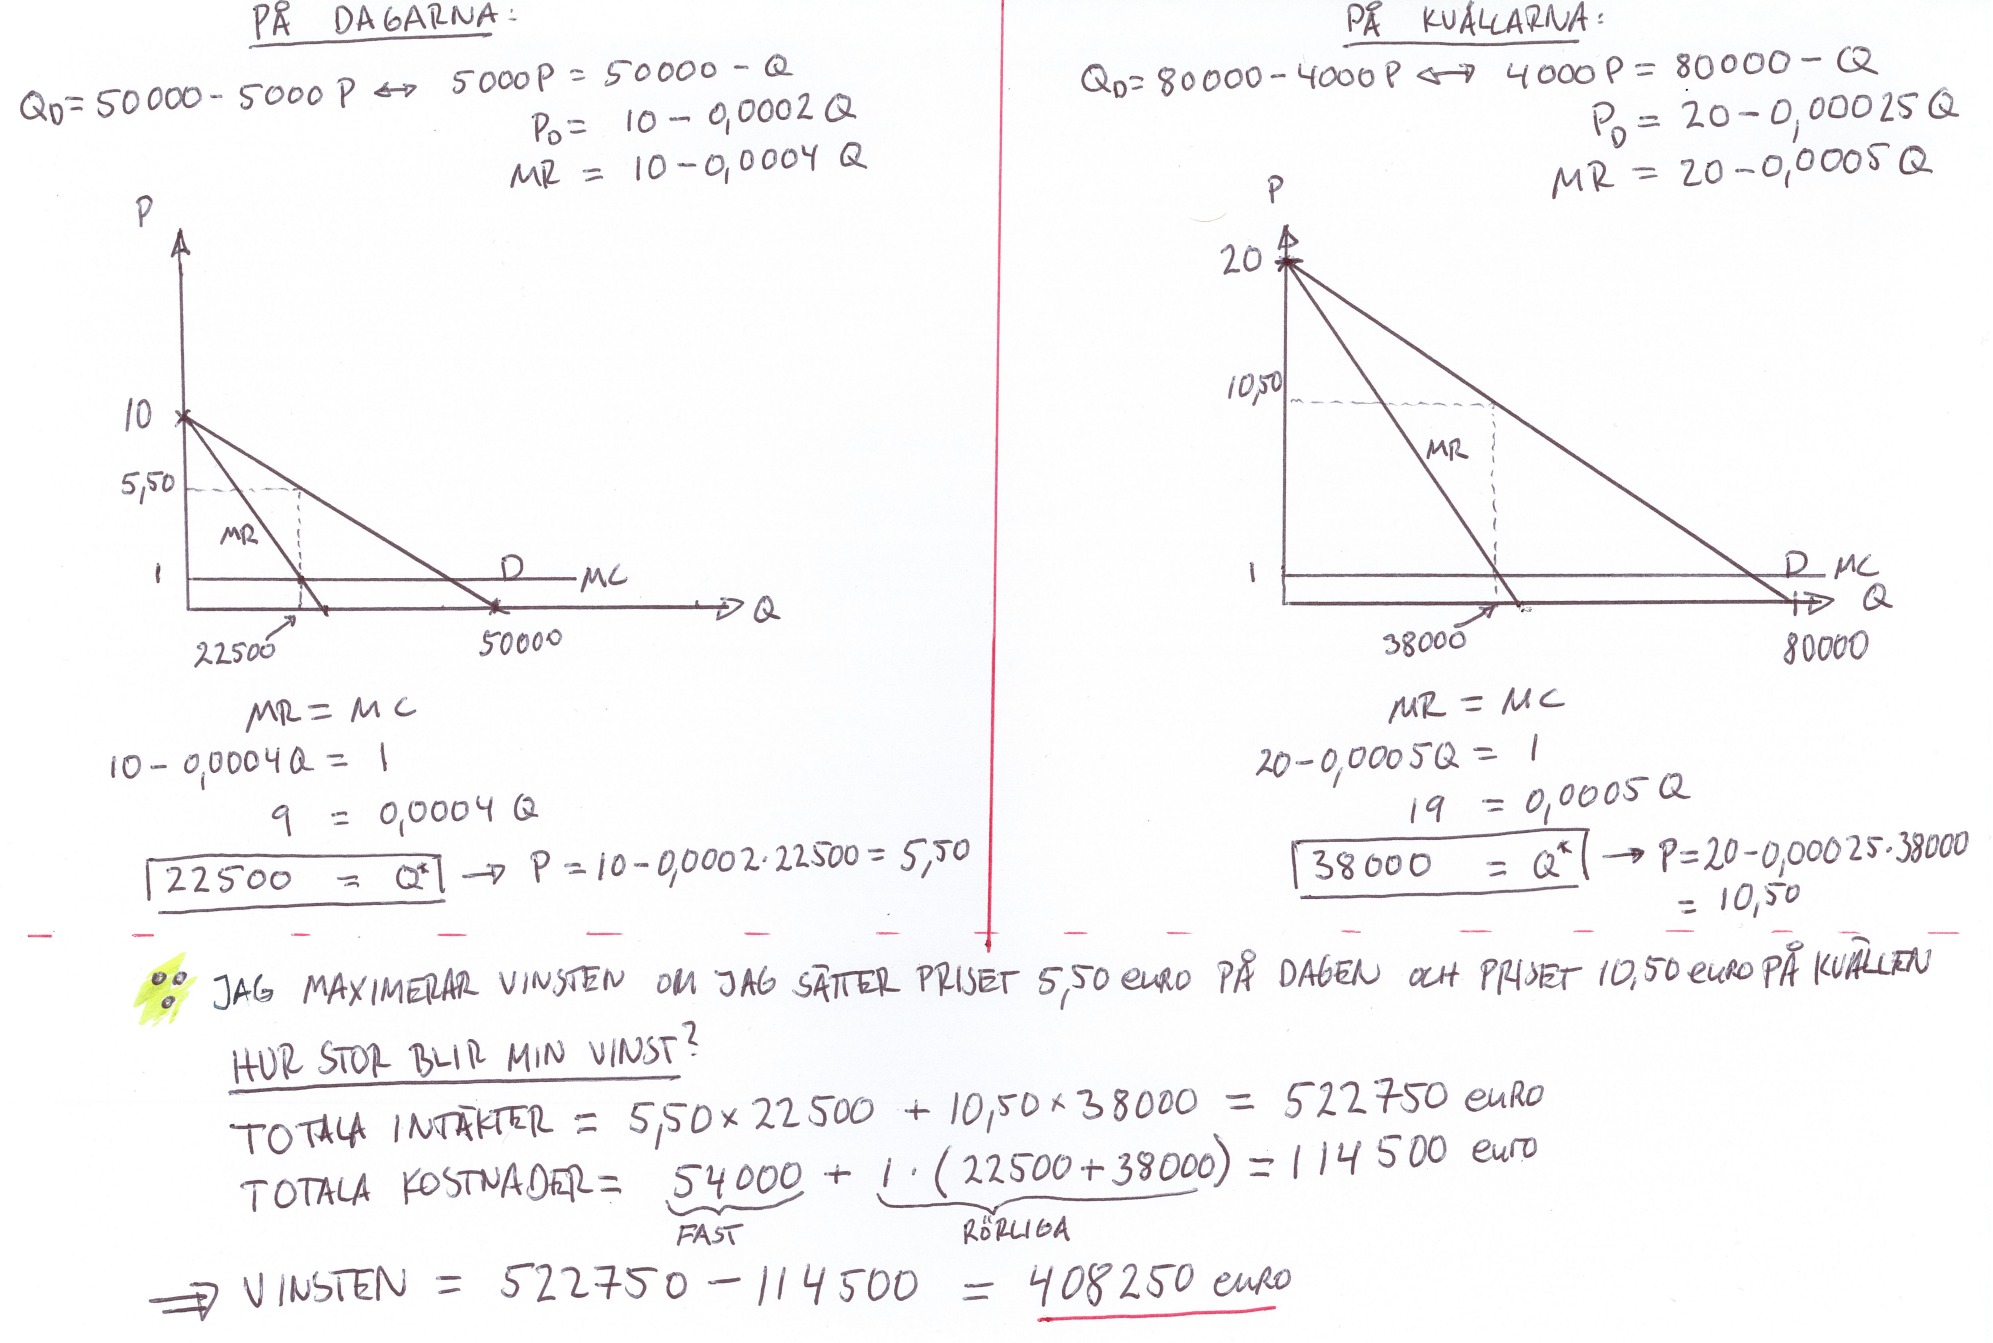 PÅ DAGARNA:
QD = 50000 - 5000P ↔ 5000P = 50000 - Q
PD = 10 - 0,0002Q
MR = 10 - 0,0004 Q
P
10
5,50
1
MR
D
MC
Q
22500
50000
MR = MC
10 - 0,0004Q = 1
9 = 0,0004 Q
22500 = Q* → P = 10 - 0,0002·22500 = 5,50
PÅ KVÄLLARNA:
QD = 80000 - 4000P ↔ 4000P = 80000 - Q
PD = 20 - 0,00025Q
MR = 20 - 0,0005Q
P
20
10,50
1
MR
D
MC
Q
38000
80000
MR = MC
20 - 0,0005Q = 1
19 = 0,0005Q
38000 = Q* → P = 20 - 0,00025·38000
= 10,50
JAG MAXIMERAR VINSTEN OM JAG SÄTTER PRISET 5,50 euro PÅ DAGEN OCH PRISET 10,50 euro PÅ KVÄLLEN
HUR STOR BLIR MIN VINST?
TOTALA INTÄKTER = 5,50 × 22500 + 10,50 × 38000 = 522750 euro
TOTALA KOSTNADER = 54000 + 1 · (22500 + 38000) = 114500 euro
FAST RÖRLIGA
⇒ VINSTEN = 522750 - 114500 = 408250 euro